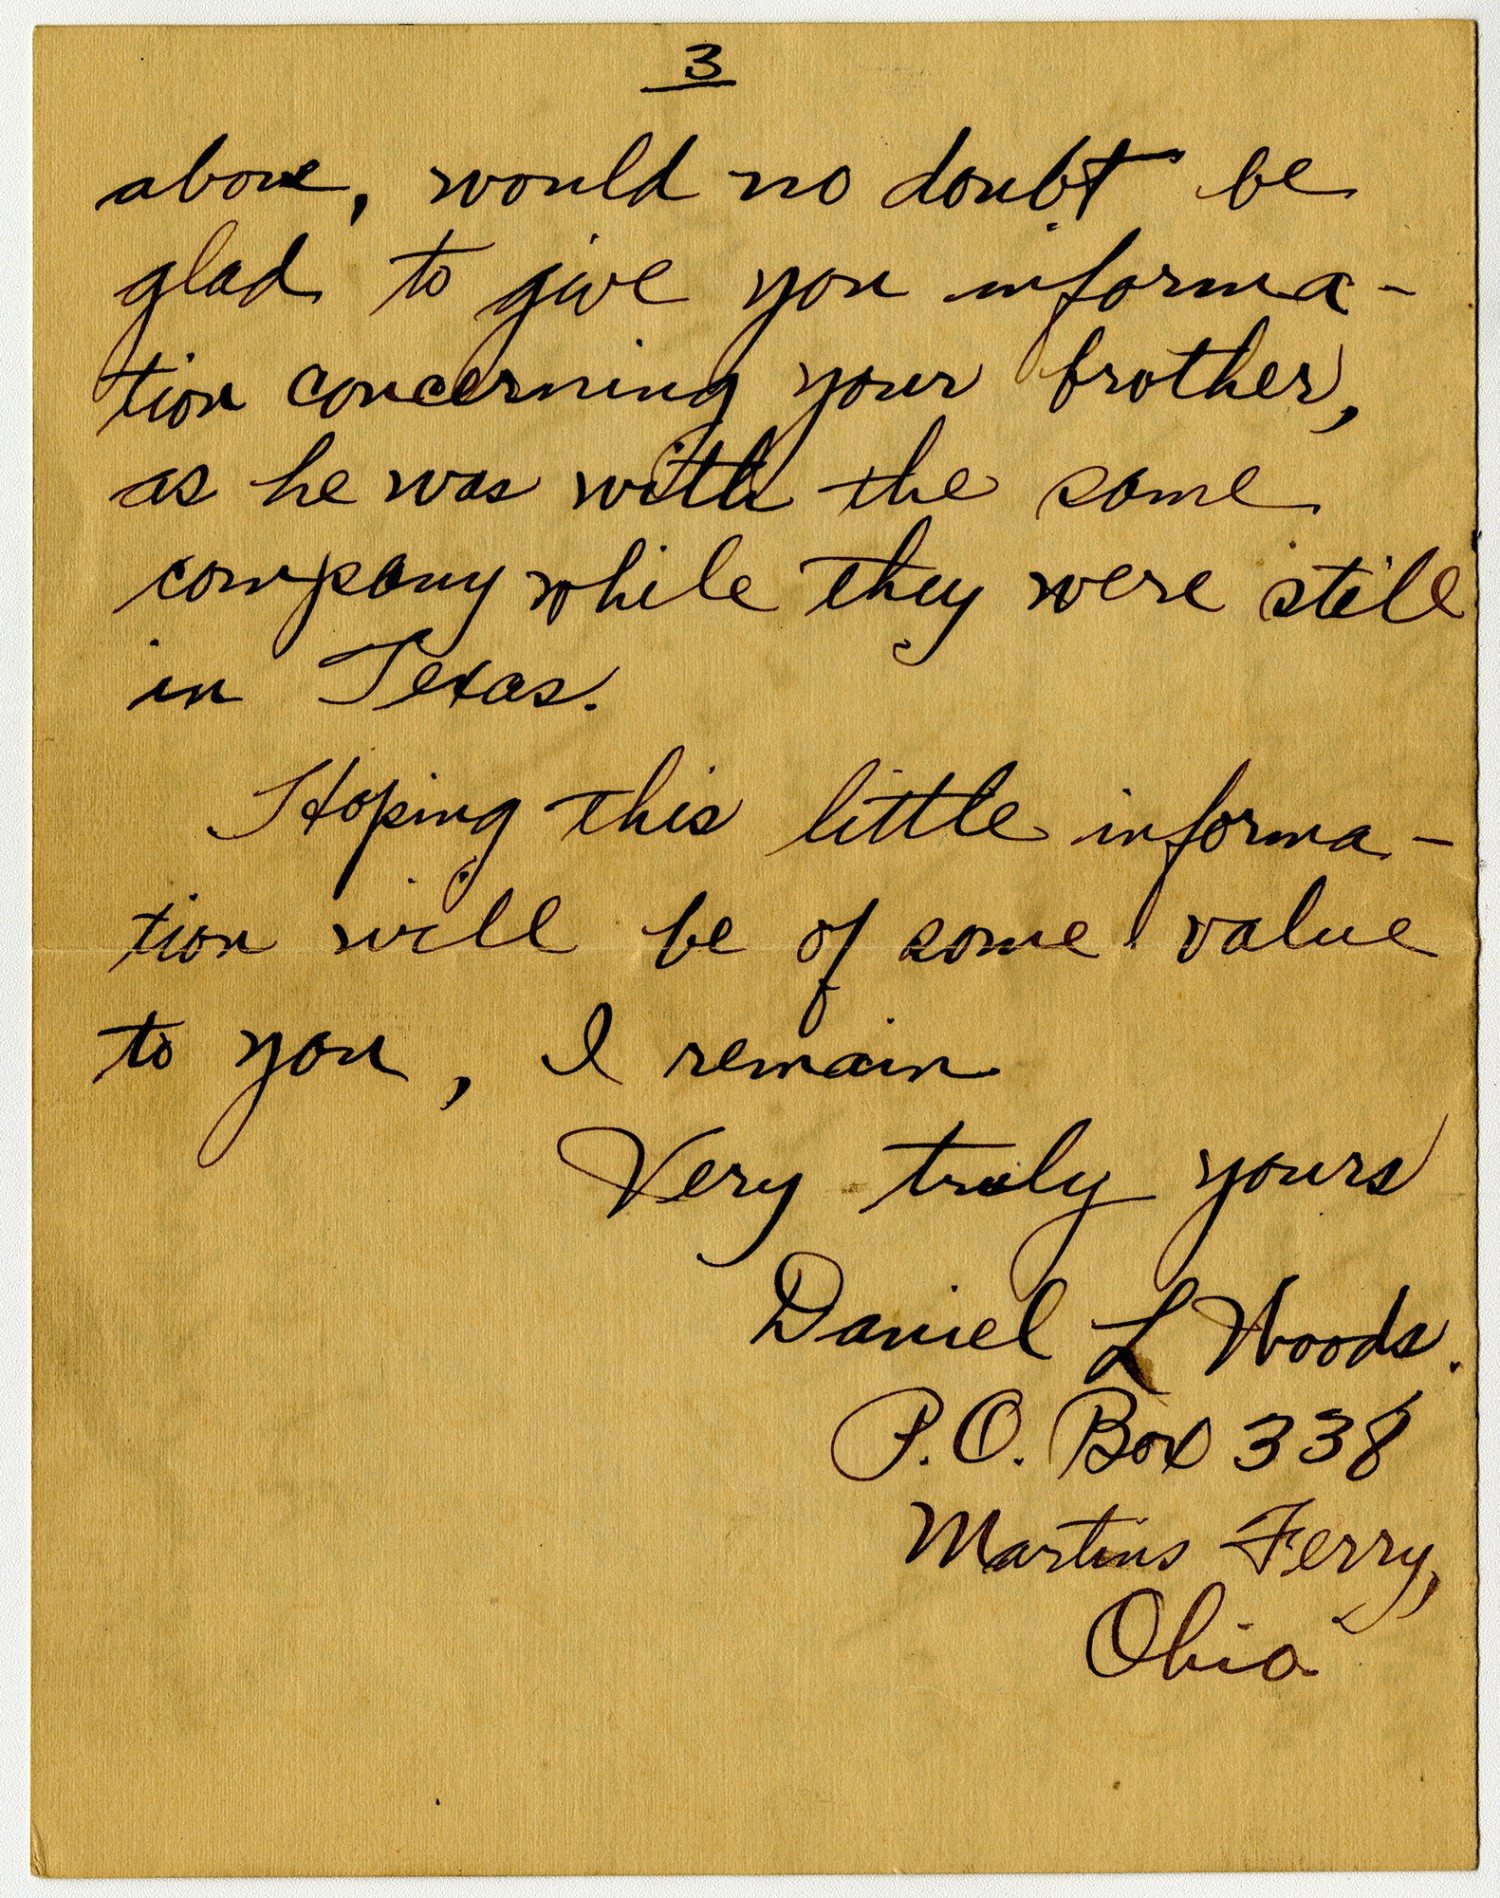 3
above, would no doubt be
glad to give you informa-
tion concerning your brother,
as he was with the same
company while they were still
in Texas.
Hoping this little informa-
tion will be of some value
to you, I remain
Very truly yours
Daniel L Woods.
P.O. Box 338
Martins Ferry,
Ohio